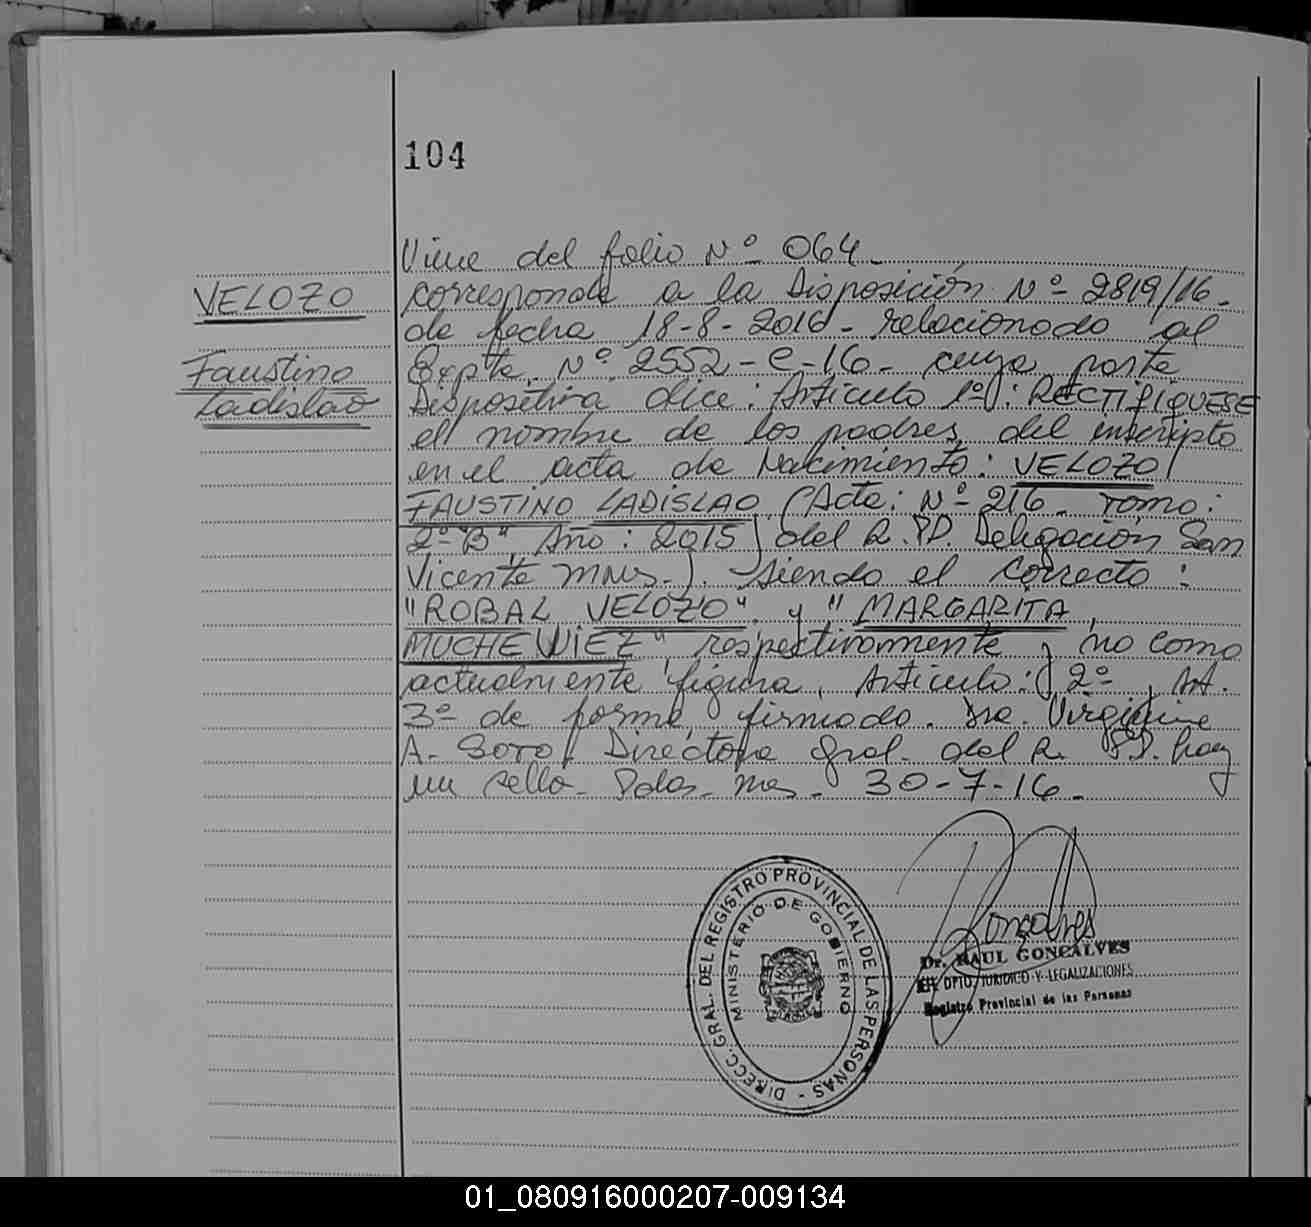 104
Viene del folio Nº 064-
VELOZO
corresponde a la Disposición Nº 2819/16-
de fecha 18-8-2016- relacionado al
Faustino
Expte. Nº 2552-e-16- cuya parte
Ladislao
Dispositiva dice: Artículo 1º: RECTIFIQUESE
el nombre de los padres del inscripto
en el acta de Nacimiento: VELOZO
FAUSTINO LADISLAO (Acta: Nº 216- Tomo:
2º "B", Año: 2015) del R.PP. Delegación San
Vicente Mnes.). Siendo el correcto:
"ROBAL VELOZO" y "MARGARITA
MUCHEWIEZ", respectivamente y no como
actualmente figura. Artículo: 2º, Art.
3º de forma, firmado. Dra. Virginia
A. Soto, Directora Gral. del R. PP. hay
un sello- Pdas- Mes- 30-7-16-
DIRECC. GRAL. DEL REGISTRO PROVINCIAL DE LAS PERSONAS -
MINISTERIO DE GOBIERNO
Goncalves
Dr. RAUL GONCALVES
DPTO. JURIDICO Y LEGALIZACIONES
Registro Provincial de las Personas
01_080916000207-009134